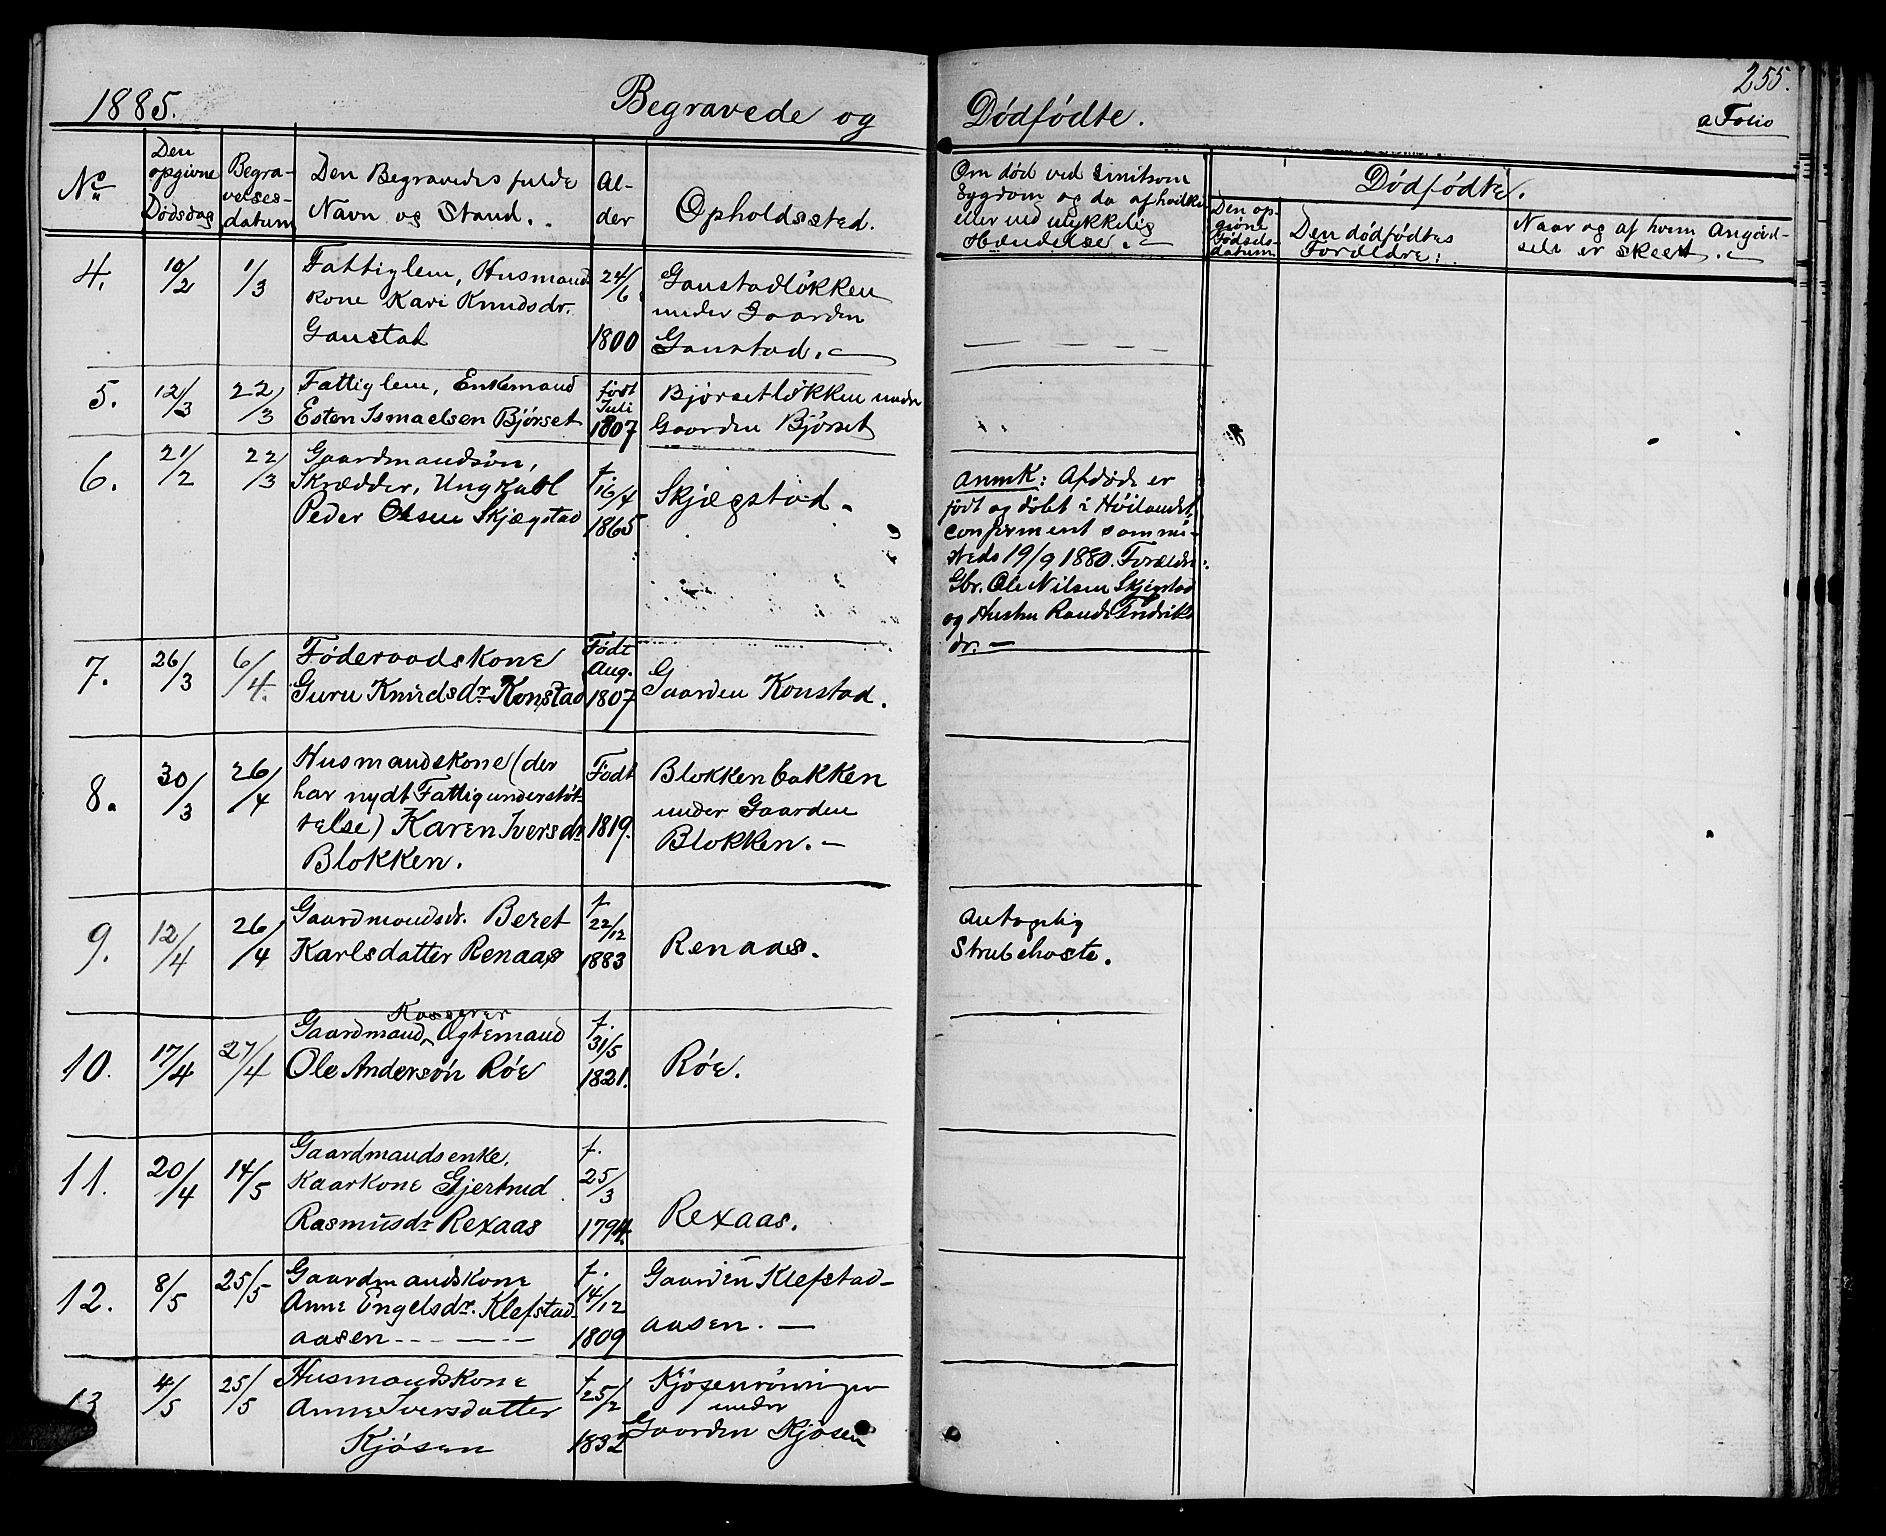 255.
1885. Begravede og Dødfødte. a Folio
No
Den opgivne Dødsdag
Begra-
velses-
datum
Den Begravedes fulde
Navn og Stand.
Al-
der
Opholdssted.
Om død ved Smitsom
Sygdom og da af hvilken
eller ved ulykkelig
Hændelse.
Dødfødte.
Den op-
givne
Fødsels-
datum
Den dødfødtes
Forældre:
Naar og af hvem Angivel-
sen er skeet.
4. 10/2 1/3
Fattiglem, Husmands
kone Kari Knudsdr.
Ganstad
24/6
1800
Ganstadløkken
under Gaarden
Ganstad.
5. 12/3 22/3
Fattiglem, Enkemand
Esten Ismaelsen Bjørset
født
Juli
1807
Bjørsetløkken under
Gaarden Bjørset
6. 21/2 22/3
Gaardmandsøn,
Skrædder, Ungkarl
Peder Olsen Skjægstad
f.
16/4
1865
Skjægstad.
Anmk: Afdøde er
født og døbt i Høilandet,
confirmeret sammé-
steds 19/9 1880. Forældre:
Gbr. Ole Nilsen Skjegstad
og Hustru Randi Fredriks
dr. —
7. 26/3 6/4.
Føderaadskone
Guru Knudsdr Konstad
Født
Aug.
1807
Gaarden Konstad.
8. 30/3 26/4
Husmandskone (der
har nydt Fattigunderstøt-
telse) Karen Iversdr
Blokken.
Født
1819.
Blokkenbakken
under Gaarden
Blokken. —
9. 12/4 26/4
Gaardmandsdr. Beret
Karlsdatter Renaas
f.
22/12
1883
Renaas.
Antagelig
Strubehoste.
10. 17/4 27/4
Kasserer
Gaardmand, Ægtemand
Ole Andersøn Røe
f.
31/5
1821.
Røe.
11. 20/4 14/5
Gaardmandsenke,
Kaarkone Gjertrud
Rasmusdr Rexaas
f.
25/3
1794.
Rexaas.
12. 8/5 25/5
Gaardmandskone
Anne Engelsdr. Klefstad-
aasen
f.
14/12
1809
Gaarden Klefstad-
aasen. —
13 4/5 25/5
Husmandskone
Anne Iversdatter
Kjøsen
f.
25/2
1832
Kjøsenrøningen
under
Gaarden Kjøsen